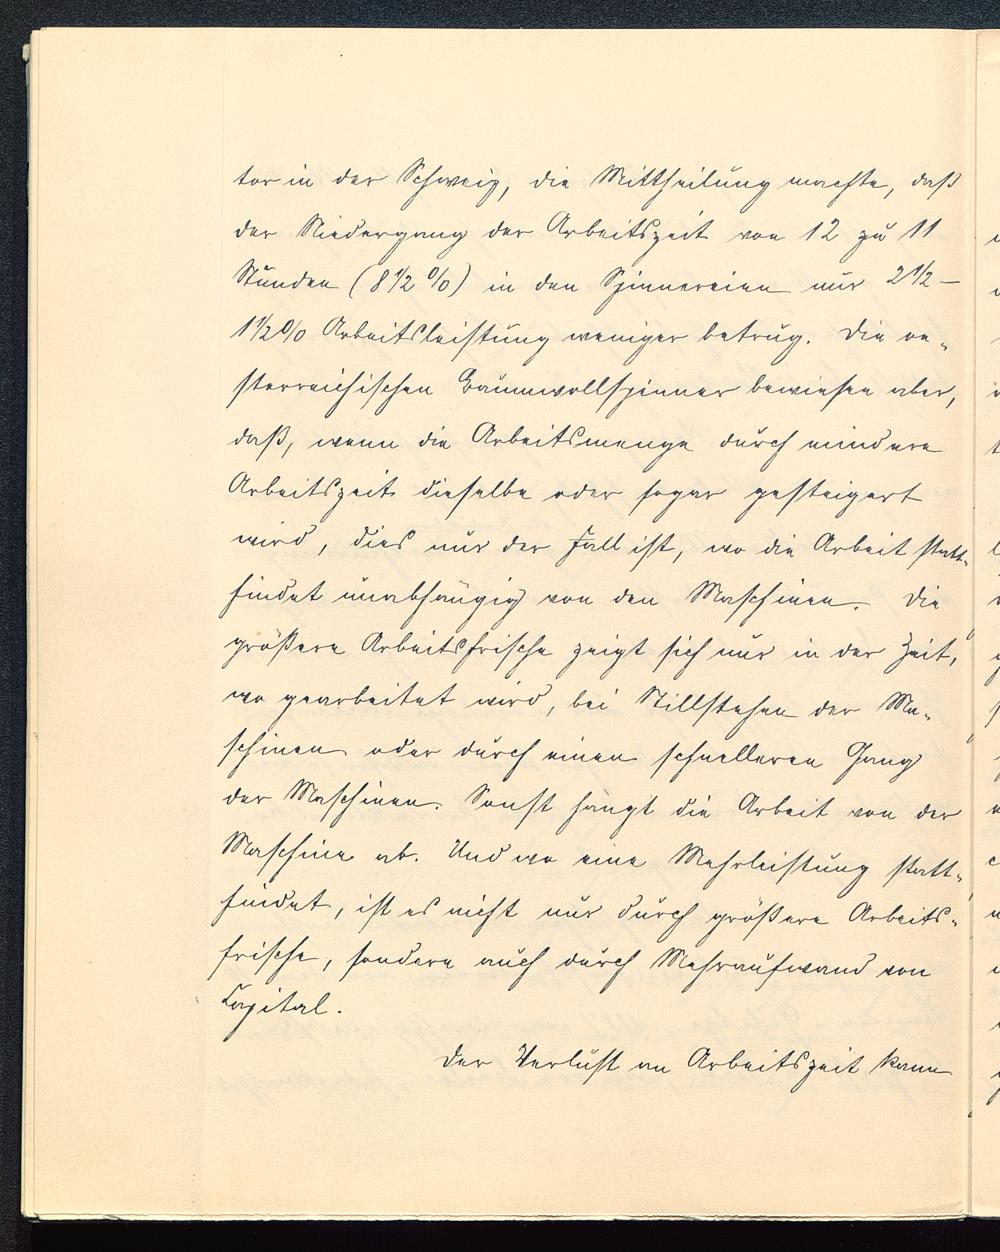 tor in der Schweiz, die Mittheilung machte, daß
der Niedergang der Arbeitszeit von 12 zu 11
Stunden (8 1/2 %) in den Spinnereien nur 2 1/2 –
1 1/2 % Arbeitsleistung weniger betrug. Die oe-
sterreichischen Baumwollspinner bewiesen aber,
daß, wenn die Arbeitsmenge durch mindere
Arbeitszeit dieselbe oder sogar gesteigert
wird, dies nur der Fall ist, wo die Arbeit statt-
findet unabhängig von den Maschinen. Die
größere Arbeitsfrische zeigt sich nur in der Zeit,
wo gearbeitet wird, bei Stillstehen der Ma-
schinen oder durch einen schnelleren Gang
der Maschinen. Sonst hängt die Arbeit von der
Maschine ab. Und wo eine Mehrleistung statt-
findet, ist es nicht nur durch größere Arbeits-
frische, sondern auch durch Mehraufwand von
Capital.
Der Verlust an Arbeitszeit kann